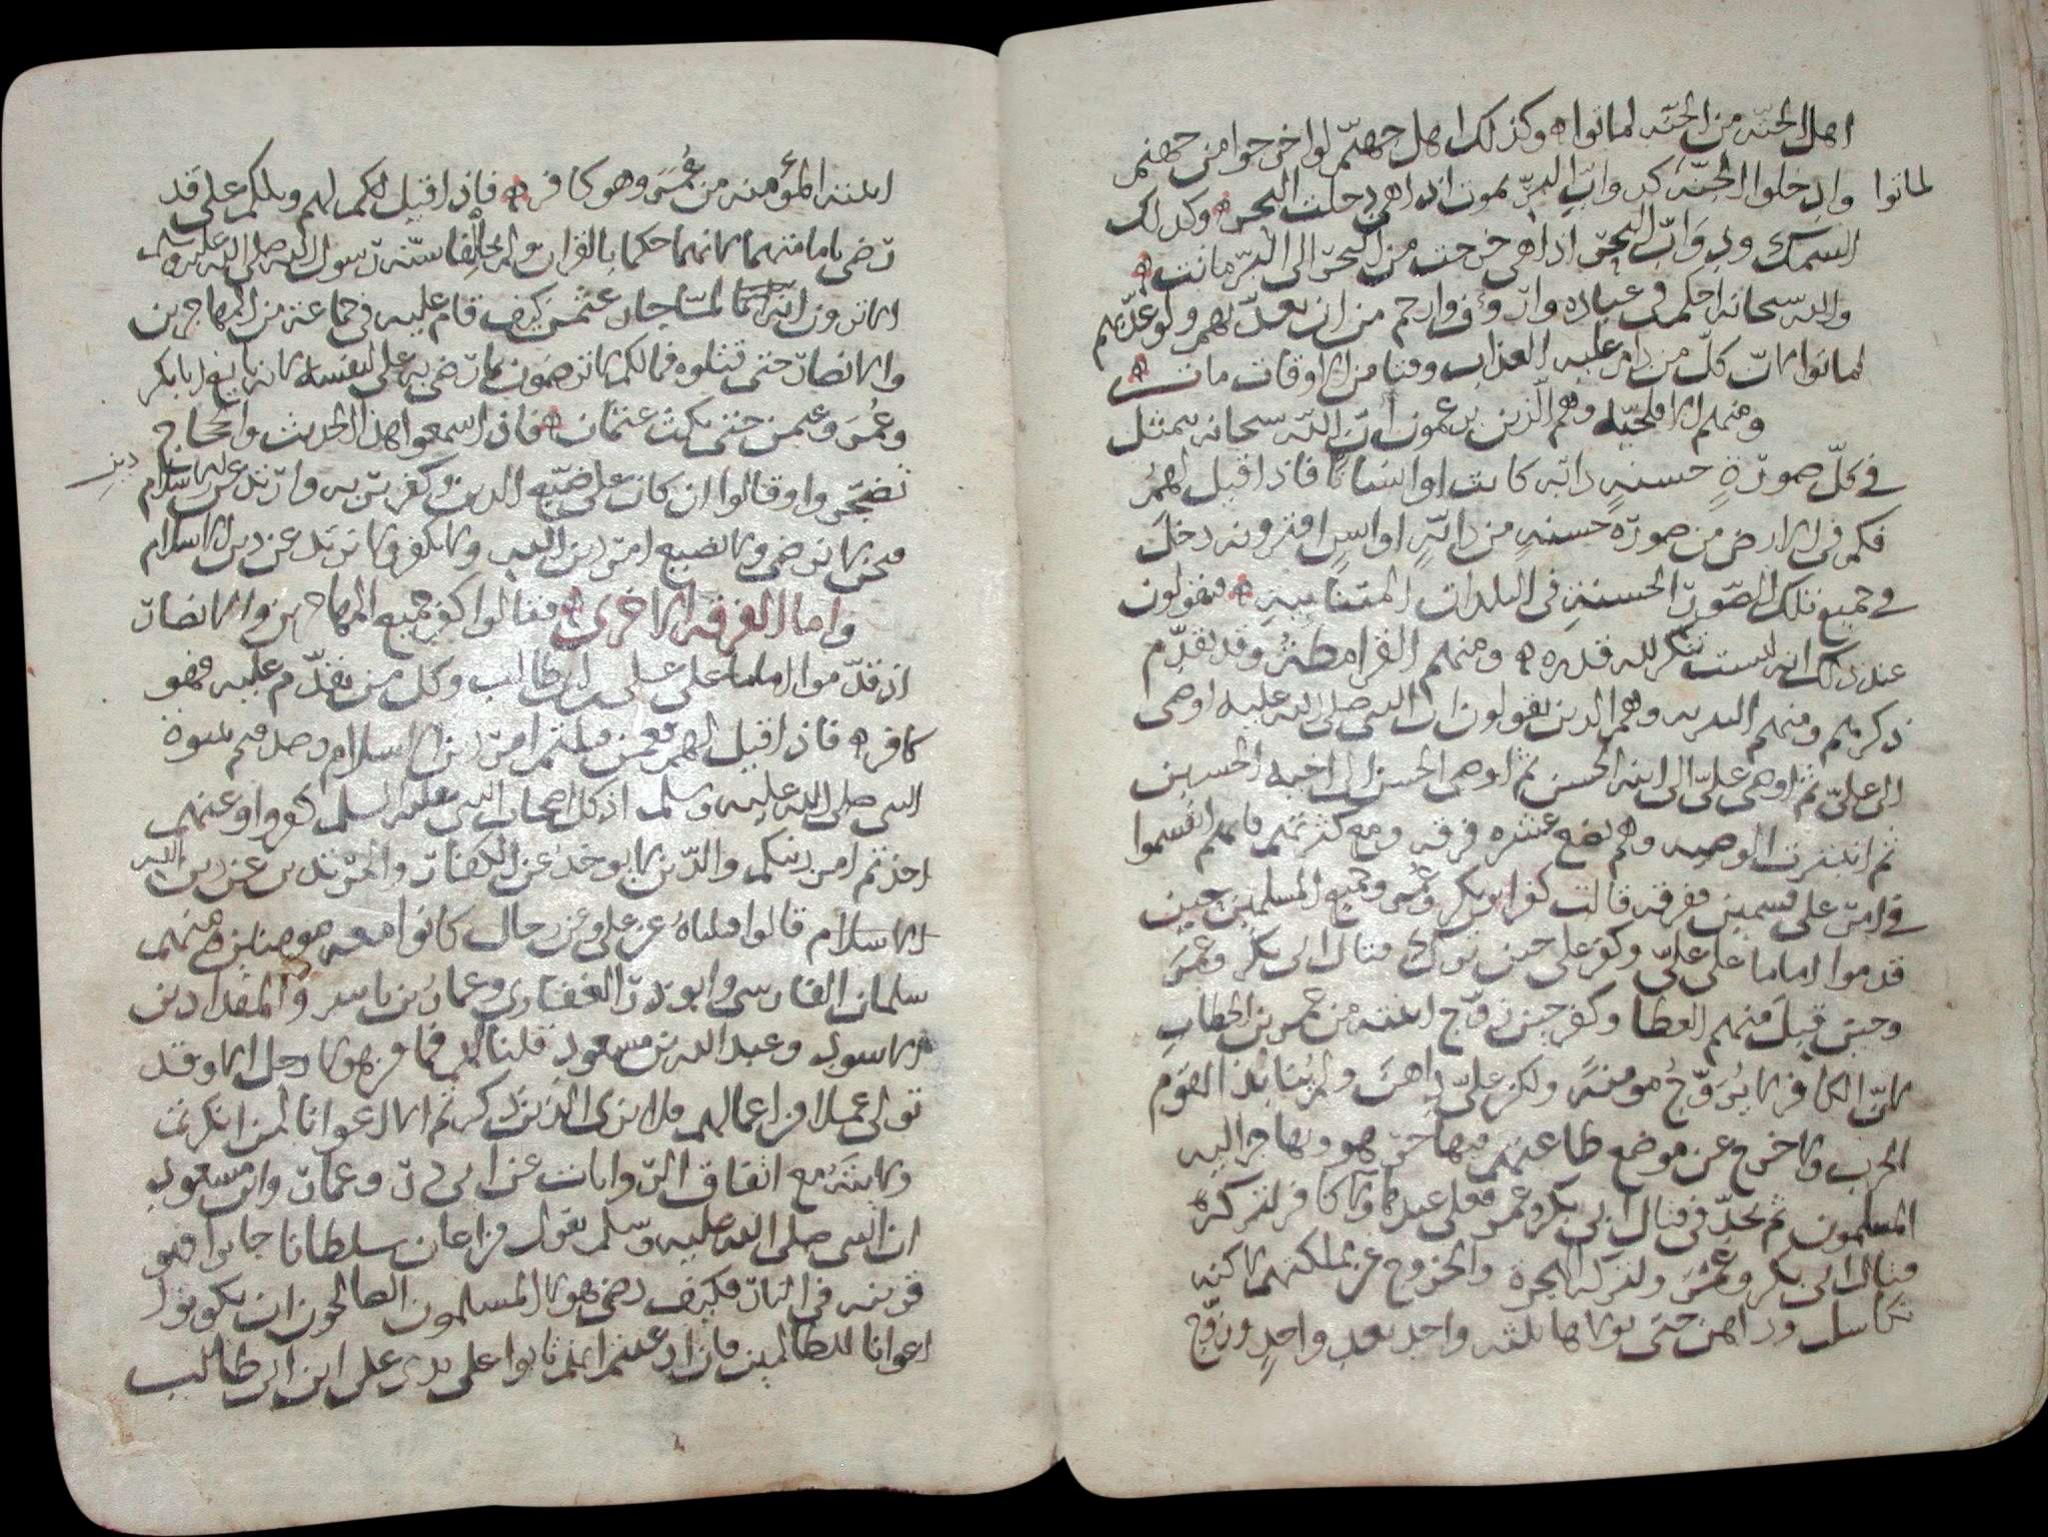 اهل الجنّه من الجنّه لماتوا ه وكذلك اهل جهنّم لو اخرجوا من جهنم
لماتوا وادخلوا الجنّة كدوابّ البرّ تموت اذا هي دخلت البحر ه وكذلك
السمك ودوَابّ البحر اذا هي خرجت من البحر الى البّر ماتت ه
والله سبحانه احكم في عباده وارؤف وارحم من ان يعذّبهم ولو عذّبهم
لماتوا لانّ كلّ من دام عليه العذاب وقتا من الاوقات مات ه
ومنهم وهم الّذين يزعمون انّ اللّه سبحانه يتمثل
في كلّ صورةٍ حسنهٍ دابّه كانت او انسانًا فاذا قيل لهمُ
فكم في الارض من صورة حسنهٍ من دابّهٍ او انسٍ افترونه دخلَ
في جميع تلك الصّور الحسنةِ في البلدان ه فيقولون
عند ذلك انه ليست تنكر لله قدره ه ومنهم القرامطةُ وقد تقدّم
ذكرهم ومنهم وهم الذين يقولون ان النبي صلى الله عليه اوصى
الى عليّ ثم اوصى عليّ الى ابنه الحسن ثم اوصى الحسن الى اخيه الحسين
ثم الوصيه وهم بضع عشره فرقه ومع كثرتهم فانهم انقسموا
في امرّ على قسمين ففرقه قالت كفر ابو بكر وعُمر وجميع المسلمين حين
قدموا اماما على عليّ وكفر علي حين ترك قتال ابي بكر وعمَرَ
وحين قبلَ منهم العطا وكفر حين زوّج ابنته من عمر بن الخطاب
لانّ الكافر لا يُزَوّجُ مومنةً ولكن عليّ داهَنَ ولم يُنابذ القوم
الحرب ولا خرج عن موضع طاعتهم فيها حرّ هو ويهاجر اليه
المسلمون ثم يجدّ في قتال ابي بكر وعمر فعلي عندهاولا كافر لتركه
قتال ابي بكر وعُمَرَ ولتركه الهجرة والخروج عن مملكتهم لاكنه
تكاسل وداهن حتى تولاها ثلثه واحد بعد واحدٍ وزوّج
ابنته المؤمنه من عُمَرَ وهو كافر ه فاذا قيل لكم لهم ويلكم علي قد
رضي بامامتهما لانهما حكما بالقران ولم يخالفا سنّه رّسول الله صلى الله عليه وسلم
الا ترون انه لمّا جار عثمن كيف قام عليه في جماعة من المهاجرين
والانصار حتى قتلوه فمالكم لا ترضون بما رّضي به علي لنفسه لانه بايع ابا بكر
وعُمرَ وعثمن حتى نكث عثمان ه فاذا سمعوا هذا الحديث والحجاج
تضجّروا وقالوا ان كان علي ضيّع الدين وكفر به وارتد عن الاسلام
دين
فنحن لا نرضى ولا نضيع امرّ دين الله ولا نكفر ولا نرتد عن دين الاسلام
واما الفرقه الاخرى ه فقالوا كفر جميع المهاجرين والانصار
اذ قدّموا اماما على علي بن ابي طالب وكل من تقدّم عليه فهو
كافر ه فاذا قيل لهم فعمن قبلتم امرّ دين الاسلام وصدقتم نبوة
النبي صلى الله عليه وسلم اذ كل اصحاب النبي عليه السلم كفروا وعنهم
اخذتم امرّ دينكم والدّين لا يوخذ عن الكفارّ والمرتدين عن دين الله
الاسلام قالوا قبلناهُ عن علي وعن رجال كانوا معه مومنين منهم
سلمان الفارسي وابو ذرّ الغفاري وعمارُ بن ياسر والمقداد بن
الاسود وعبد الله بن مسعود قلنا لهم فما من هولا رجل الا وقد
تولى عملا من اعمالهم فلا نرى الذين ذكرتم الا اعوانا لمن انكرتم
ولايته مع اتفاق الرّوايات عن ابي ذرّ وعمارّ وابن مسعود
ان النبي صلى الله عليه وسلم يقول من اعان سلطانا جايرا فهو
قرينه في النارّ فكيف رضي هولا المسلمون الصالحون ان يكونوا
اعوانا للظالمين فان ادعيتم انهم تابوا على يدي علي ابن ابي طالب